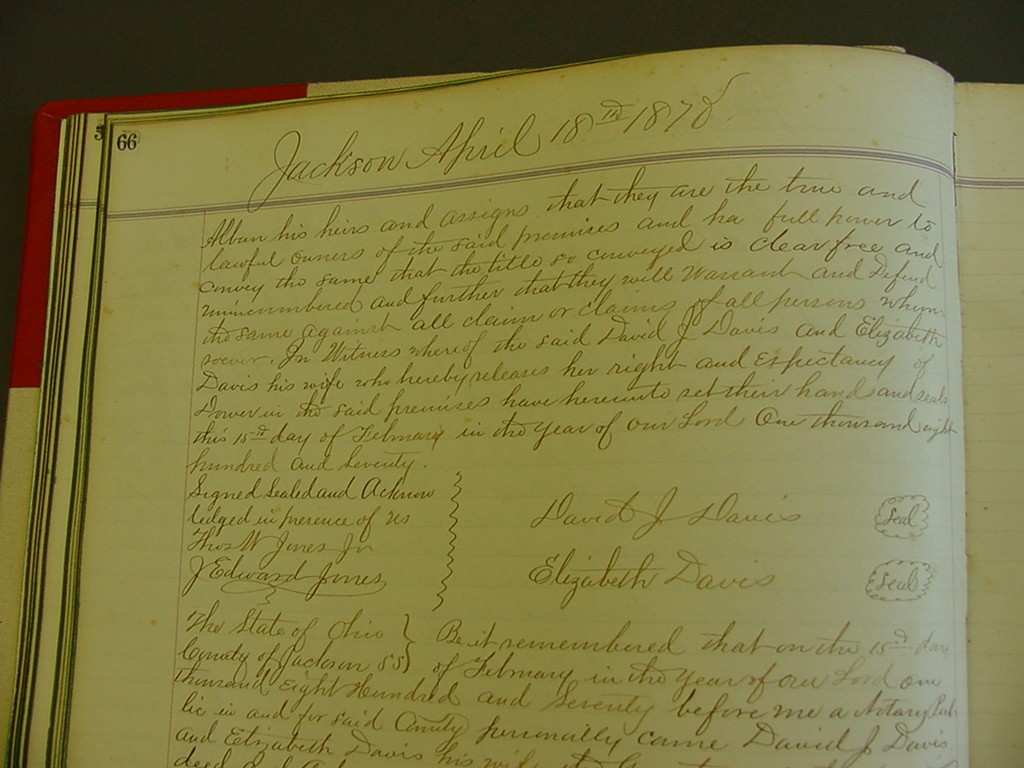 66
Jackson April 18th 1878
Alban his heirs and assigns that they are the true and
lawful owners of the said premises and ha full power to
convey the same that the title so conveyed is clear free and
unincumbered and further that they will Warrant and Defend
the same against all claim or claims of all persons whom-
soever. In Witness whereof the said David J Davis and Elizabeth
Davis his wife who hereby releases her right and Expectancy of
Dower in the said premises have hereunto set their hands and seals
this 15th day of February in the year of our Lord One thousand eight
hundred and seventy.
Signed Sealed and Acknow
ledged in presence of us
Thos W Jones Jr
J Edward Jones
David J Davis Seal
Elizabeth Davis Seal
The State of Ohio
County of Jackson SS
Be it remembered that on the 15th day
of February in the year of our Lord one
thousand Eight Hundred and Seventy before me a Notary Pub-
lic in and for said County personally came David J Davis
and Elizabeth Davis his wife